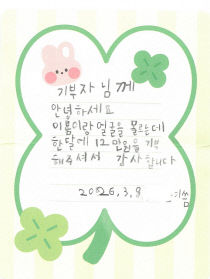 기부자님께
안녕하세요
이름이랑 얼굴을 몰르는데
한달에 12만원을 기부
해주셔서 감사합니다
2026.3.9